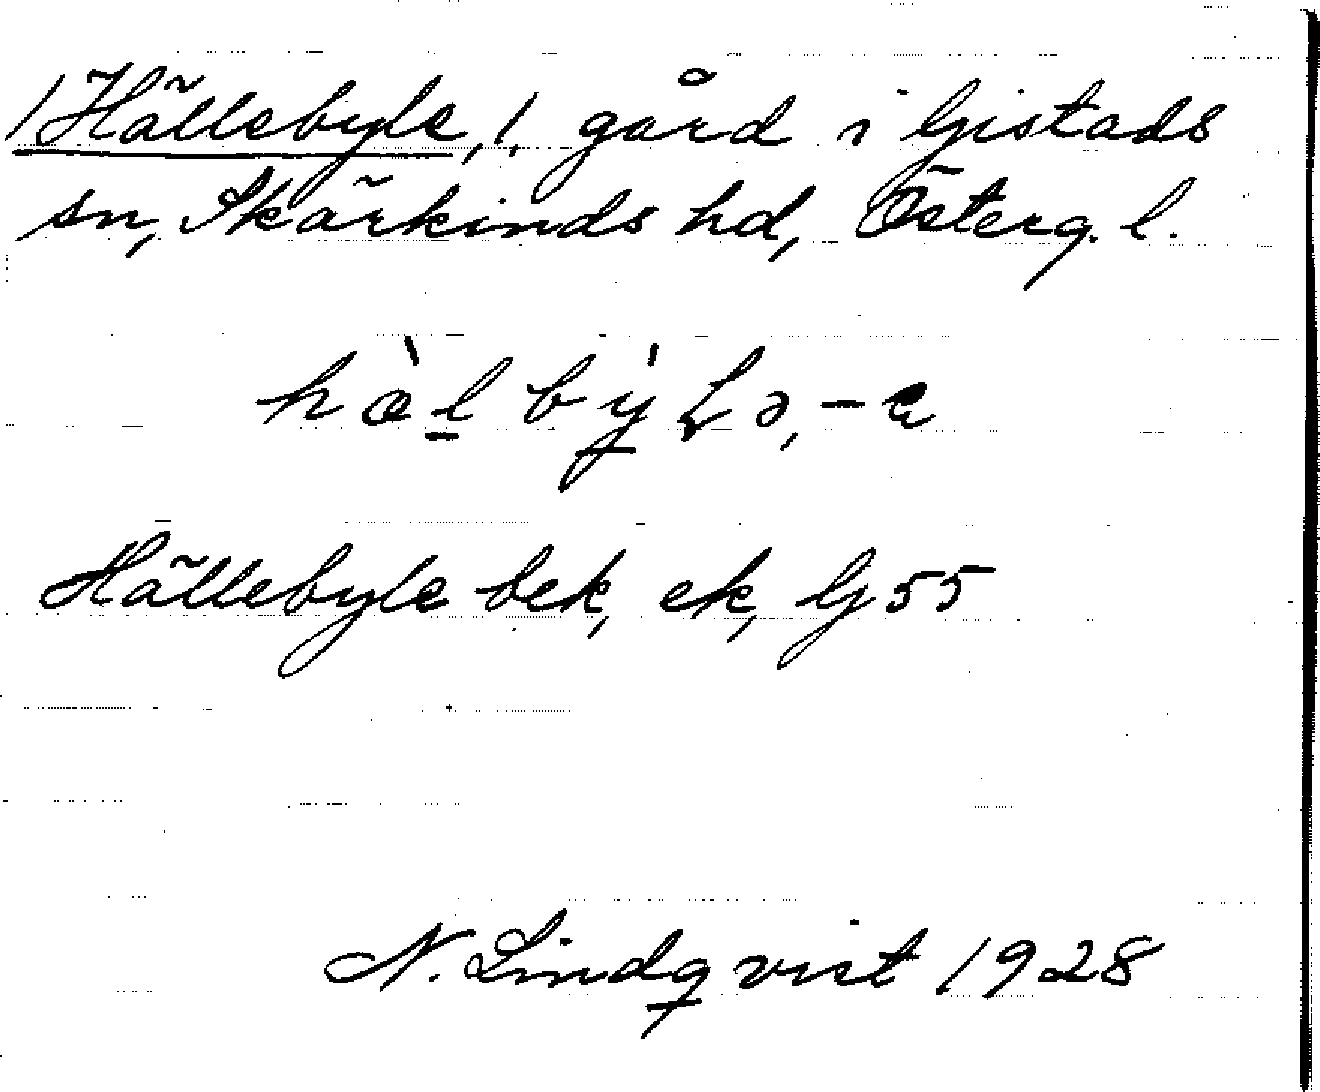 /Hällebyle, /, gård i Gistads
sn, Skärkinds hd, Österg. l.
hæ̀l bý Lə, -a
Hällebyle bek, ek, G 55
N. Lindqvist 1928